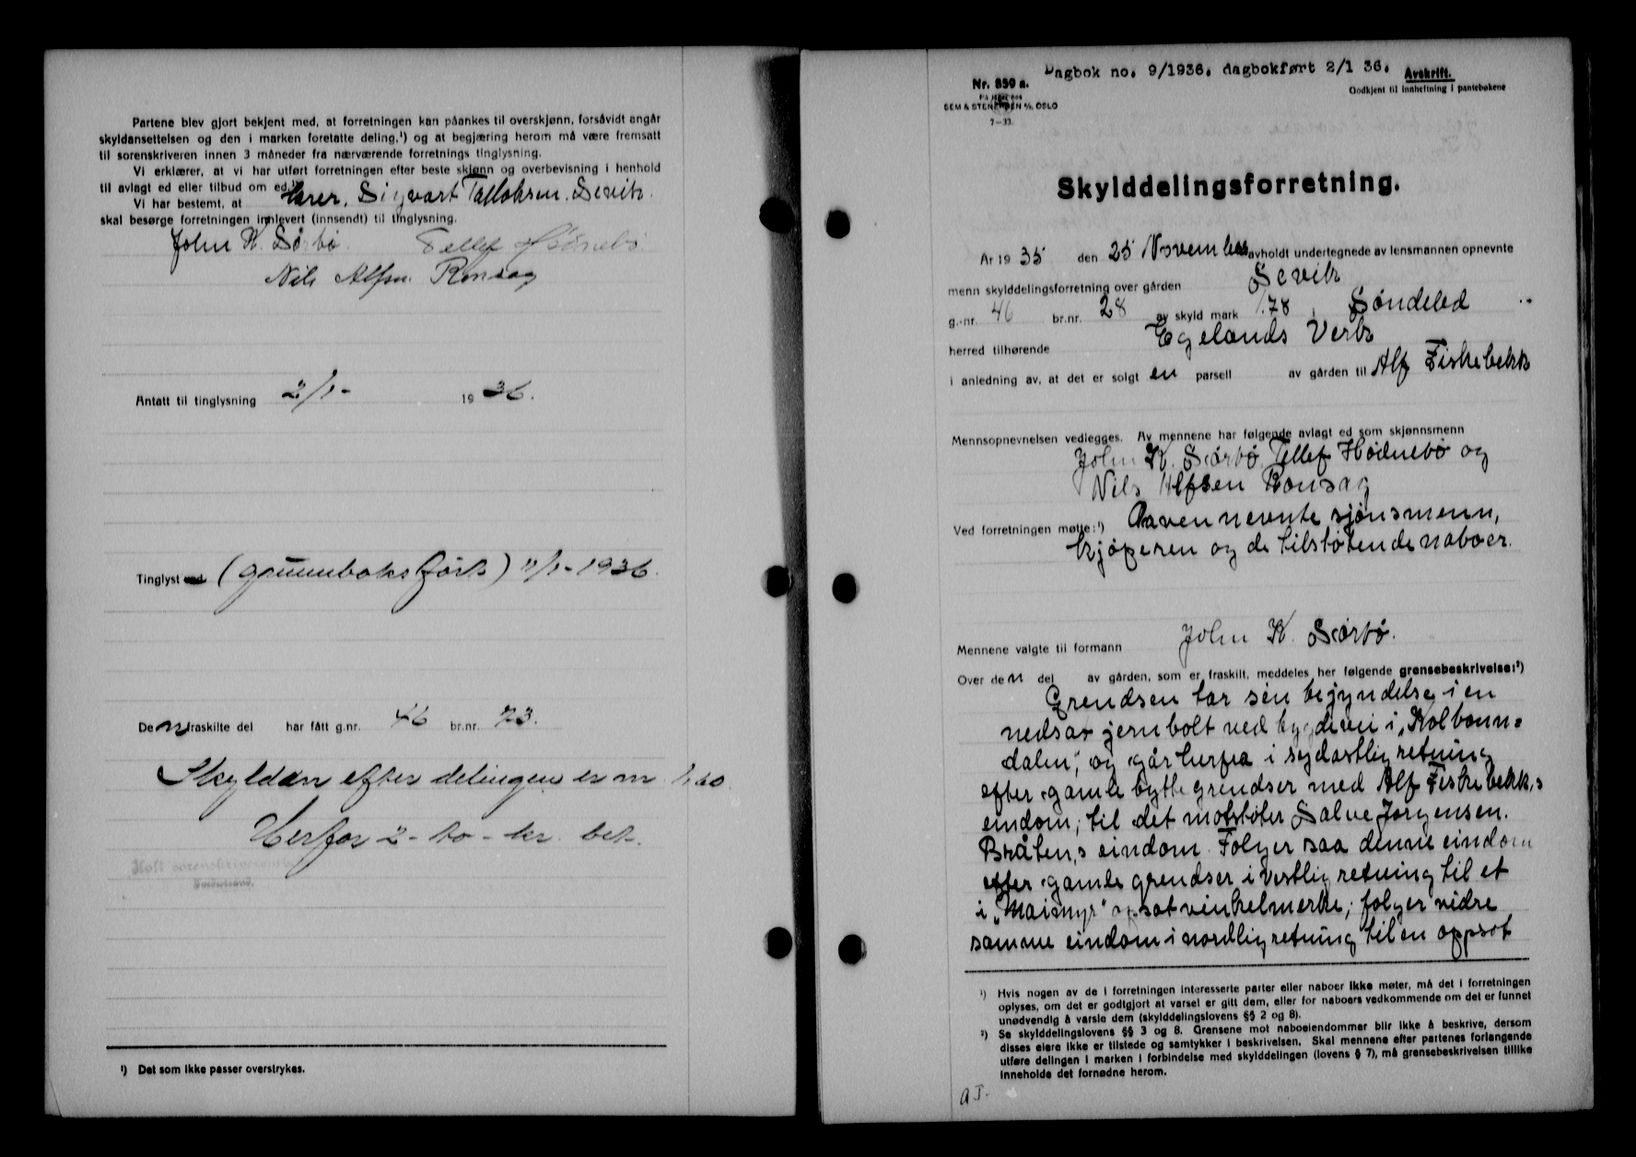 Partene blev gjort bekjent med, at forretningen kan påankes til overskjønn, forsåvidt angår
skyldansettelsen og den i marken foretatte deling,¹) og at begjæring herom må være fremsatt
til sorenskriveren innen 3 måneder fra nærværende forretnings tinglysning.
Vi erklærer, at vi har utført forretningen efter beste skjønn og overbevisning i henhold
til avlagt ed eller tilbud om ed.
Vi har bestemt, at Herer. Sigvart Talloksen. Sevik.
skal besørge forretningen innlevert (innsendt) til tinglysning.
John K. Sørbø. Tellef Hødnebø
Nils Alfsen Ronsag
Antatt til tinglysning 2/1- 1936.
Tinglyst (grunnboksført) 11/1-1936.
Den fraskilte del har fått g.nr. 46 br.nr. 73.
Skylden efter delingen er m 1,60
Herfor 2 - to - kr. bet.
Holt sorenskriverembede
¹) Det som ikke passer overstrykes.
Dagbok no. 9/1936. dagbokført 2/1 36.
Nr. 859 a.
Avskrift.
Godkjent til innheftning i pantebøkene
SEM & STENERSEN A/S, OSLO
7-33
Skylddelingsforretning.
År 1935 den 25 November avholdt undertegnede av lensmannen opnevnte
menn skylddelingsforretning over gården Sevik
g.-nr. 46 br.nr. 28 av skyld mark 1.78, Søndeled
herred tilhørende Egelands Verk
i anledning av, at det er solgt en parsell av gården til Alf Fiskebekk
Mennsopnevnelsen vedlegges. Av mennene har følgende avlagt ed som skjønnsmenn
John K. Sørbø, Tellef Hødnebø og
Nils Alfsen Ronsag
Ved forretningen møtte:¹) Aavennevnte sjønsmenn,
kjøperen og de tilstøtende naboer.
Mennene valgte til formann John K. Sørbø.
Over den del av gården, som er fraskilt, meddeles her følgende grensebeskrivelse:²)
Grendsen tar sin begyndelse i en
nedsat jernbolt ved bygdevei i „Kolbonn=
dalen", og går herfra i sydøstlig retning
efter gamle bytte grendser med Alf Fiskebekk,s
eindom, til det motstøter Salve Jørgensen.
Bråten,s eindom. Følger saa denne eindom
efter gamle grendser i vestlig retning til et
i „Maismyr" opsat vinkelmerke, følger vidre
samme eindom i nordlig retning til en oppsat
¹) Hvis nogen av de i forretningen interesserte parter eller naboer ikke møter, må det i forretningen
oplyses, om det er godtgjort at varsel er gitt dem, eller for naboers vedkommende om det er funnet
unødvendig å varsle dem (skylddelingslovens §§ 2 og 8).
²) Se skylddelingslovens §§ 3 og 8. Grensene mot naboeiendommer blir ikke å beskrive, dersom
disses eiere ikke er tilstede og samtykker i beskrivelsen. Skal mennene efter partenes forlangende
utføre delingen i marken i forbindelse med skylddelingen (lovens § 7), må grensebeskrivelsen tillike
inneholde det fornødne herom.